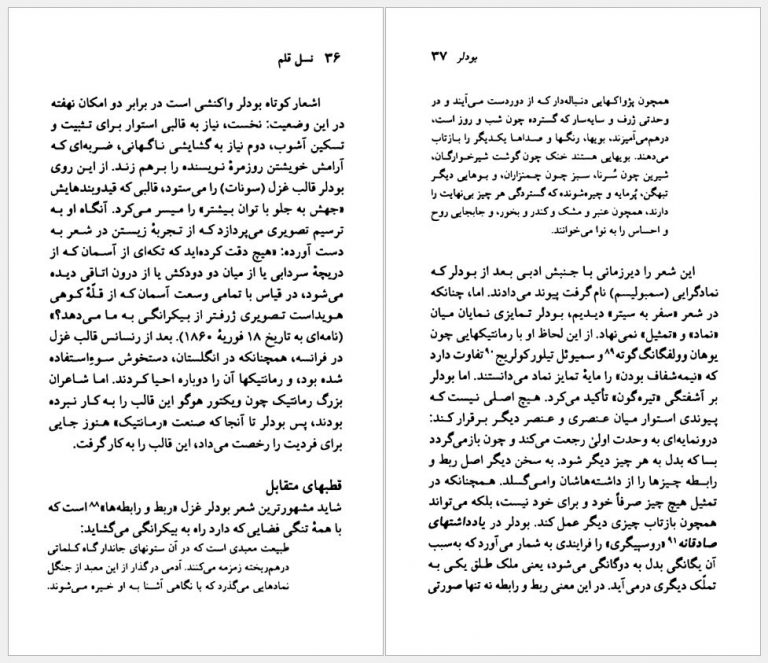 ۳۶ نسل قلم
اشعار کوتاه بودلر واکنشی است در برابر دو امکان نهفته
در این وضعیت: نخست، نیاز به قالبی استوار برای تثبیت و
تسکین آشوب، دوم نیاز به گشایشی ناگهانی، ضربه‌ای که
آرامش خویشتن روزمرهٔ نویسنده را برهم زند. از این روی
بودلر قالب غزل (سونات) را می‌ستود، قالبی که قیدوبندهایش
«جهش به جلو با توان بیشتر» را میسر می‌کرد. آنگاه او به
ترسیم تصویری می‌پردازد که از تجربهٔ زیستن در شعر به
دست آورده: «هیچ دقت کرده‌اید که تکه‌ای از آسمان که از
دریچهٔ سردابی یا از میان دو دودکش یا از درون اتاقی دیده
می‌شود، در قیاس با تمامی وسعت آسمان که از قلّهٔ کوهی
هویداست تصویری ژرفتر از بیکرانگی به ما می‌دهد؟»
(نامه‌ای به تاریخ ۱۸ فوریهٔ ۱۸۶۰). بعد از رنسانس قالب غزل
در فرانسه، همچنانکه در انگلستان، دستخوش سوءاستفاده
شده بود، و رمانتیکها آن را دوباره احیا کردند. اما شاعران
بزرگ رمانتیک چون ویکتور هوگو این قالب را به کار نبرده
بودند، پس بودلر تا آنجا که صنعت «رمانتیک» هنوز جایی
برای فردیت را رخصت می‌داد، این قالب را به کار گرفت.
قطبهای متقابل
شاید مشهورترین شعر بودلر غزل «ربط و رابطه‌ها»۸۸ است که
با همهٔ تنگی فضایی که دارد راه به بیکرانگی می‌گشاید:
طبیعت معبدی است که در آن ستونهای جاندار گاه کلماتی
درهم‌ریخته زمزمه می‌کنند. آدمی در گذار از این معبد از جنگل
نمادهایی می‌گذرد که با نگاهی آشنا به او خیره می‌شوند.
بودلر ۳۷
همچون پژواکهایی دنباله‌دار که از دوردست می‌آیند و در
وحدتی ژرف و سایه‌سار که گسترده چون شب و روز است،
درهم‌می‌آمیزند، بویها، رنگها و صداها یکدیگر را بازتاب
می‌دهند. بویهایی هستند خنک چون گوشت شیرخوارگان،
شیرین چون سُرنا، سبز چون چمنزاران، و بویهای دیگر
تبهگن، پُرمایه و چیره‌شونده که گستردگی هر چیز بی‌نهایت را
دارند، همچون عنبر و مشک و کندر و بخور، و جابجایی روح
و احساس را به نوا می‌خوانند.
این شعر را دیرزمانی با جنبش ادبی بعد از بودلر که
نمادگرایی (سمبولیسم) نام گرفت پیوند می‌دادند. اما، چنانکه
در شعر «سفر به سیتر» دیدیم، بودلر تمایزی نمایان میان
«نماد» و «تمثیل» نمی‌نهاد. از این لحاظ او با رمانتیکهایی چون
یوهان وولفگانگ گوته۸۹ و سمیوئل تیلور کولریج۹۰ تفاوت دارد
که «نیمه‌شفاف بودن» را مایهٔ تمایز نماد می‌دانستند. اما بودلر
بر آشفتگی «تیره‌گون» تأکید می‌کرد. هیچ اصلی نیست که
پیوندی استوار میان عنصری و عنصر دیگر برقرار کند:
درونمایه‌ای به وحدت اولیٰ رجعت می‌کند و چون بازمی‌گردد
بسا که بدل به هر چیز دیگر شود. به سخن دیگر اصل ربط و
رابطه چیزها را از داشته‌هاشان وامی‌گسلد. همچنانکه در
تمثیل هیچ چیز صرفاً خود و برای خود نیست، بلکه می‌تواند
همچون بازتاب چیزی دیگر عمل کند. بودلر در یادداشتهای
صادقانه۹۱ «روسپیگری» را فرایندی به شمار می‌آورد که به‌سبب
آن یگانگی بدل به دوگانگی می‌شود، یعنی ملک طلق یکی به
تملّک دیگری درمی‌آید. در این معنی ربط و رابطه نه تنها صورتی